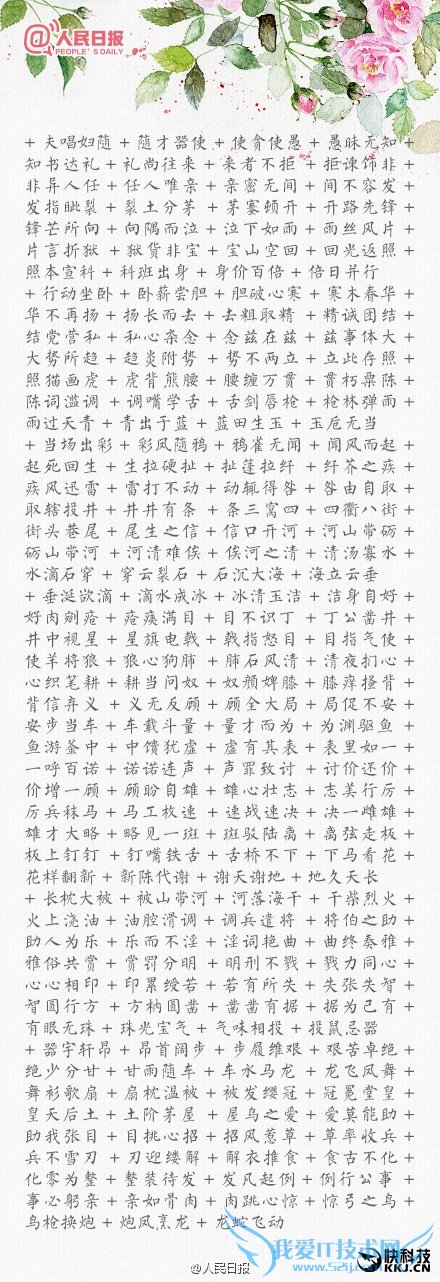 人民日报
PEOPLE'S DAILY
+ 夫唱妇随 + 随才器使 + 使贪使愚 + 愚昧无知 +
知书达礼 + 礼尚往来 + 来者不拒 + 拒谏饰非 +
非异人任 + 任人唯亲 + 亲密无间 + 间不容发 +
发指眦裂 + 裂土分茅 + 茅塞顿开 + 开路先锋 +
锋芒所向 + 向隅而泣 + 泣下如雨 + 雨丝风片 +
片言折狱 + 狱货非宝 + 宝山空回 + 回光返照 +
照本宣科 + 科班出身 + 身价百倍 + 倍日并行
+ 行动坐卧 + 卧薪尝胆 + 胆破心寒 + 寒木春华 +
华不再扬 + 扬长而去 + 去粗取精 + 精诚团结 +
结党营私 + 私心杂念 + 念兹在兹 + 兹事体大 +
大势所趋 + 趋炎附势 + 势不两立 + 立此存照 +
照猫画虎 + 虎背熊腰 + 腰缠万贯 + 贯朽粟陈 +
陈词滥调 + 调嘴学舌 + 舌剑唇枪 + 枪林弹雨 +
雨过天青 + 青出于蓝 + 蓝田生玉 + 玉卮无当
+ 当场出彩 + 彩凤随鸦 + 鸦雀无闻 + 闻风而起 +
起死回生 + 生拉硬扯 + 扯蓬拉纤 + 纤芥之疾 +
疾风迅雷 + 雷打不动 + 动辄得咎 + 咎由自取 +
取辖投井 + 井井有条 + 条三窝四 + 四衢八街 +
街头巷尾 + 尾生之信 + 信口开河 + 河山带砺 +
砺山带河 + 河清难俟 + 俟河之清 + 清汤寡水 +
水滴石穿 + 穿云裂石 + 石沉大海 + 海立云垂
+ 垂涎欲滴 + 滴水成冰 + 冰清玉洁 + 洁身自好 +
好肉剜疮 + 疮痍满目 + 目不识丁 + 丁公凿井 +
井中视星 + 星旗电戟 + 戟指怒目 + 目指气使 +
使羊将狼 + 狼心狗肺 + 肺石风清 + 清夜扪心 +
心织笔耕 + 耕当问奴 + 奴颜婢膝 + 膝痒搔背 +
背信弃义 + 义无反顾 + 顾全大局 + 局促不安 +
安步当车 + 车载斗量 + 量才而为 + 为渊驱鱼 +
鱼游釜中 + 中馈犹虚 + 虚有其表 + 表里如一 +
一呼百诺 + 诺诺连声 + 声罪致讨 + 讨价还价 +
价增一顾 + 顾盼自雄 + 雄心壮志 + 志美行厉 +
厉兵秣马 + 马工枚速 + 速战速决 + 决一雌雄 +
雄才大略 + 略见一斑 + 斑驳陆离 + 离弦走板 +
板上钉钉 + 钉嘴铁舌 + 舌桥不下 + 下马看花 +
花样翻新 + 新陈代谢 + 谢天谢地 + 地久天长
+ 长枕大被 + 被山带河 + 河落海干 + 干柴烈火 +
火上浇油 + 油腔滑调 + 调兵遣将 + 将伯之助 +
助人为乐 + 乐而不淫 + 淫词艳曲 + 曲终奏雅 +
雅俗共赏 + 赏罚分明 + 明刑不戮 + 戮力同心 +
心心相印 + 印累绶若 + 若有所失 + 失张失智 +
智圆行方 + 方枘圆凿 + 凿凿有据 + 据为己有 +
有眼无珠 + 珠光宝气 + 气味相投 + 投鼠忌器
+ 器宇轩昂 + 昂首阔步 + 步履维艰 + 艰苦卓绝 +
绝少分甘 + 甘雨随车 + 车水马龙 + 龙飞凤舞 +
舞衫歌扇 + 扇枕温被 + 被发缨冠 + 冠冕堂皇 +
皇天后土 + 土阶茅屋 + 屋乌之爱 + 爱莫能助 +
助我张目 + 目挑心招 + 招风惹草 + 草率收兵 +
兵不雪刃 + 刃迎缕解 + 解衣推食 + 食古不化 +
化零为整 + 整装待发 + 发凡起例 + 例行公事 +
事必躬亲 + 亲如骨肉 + 肉跳心惊 + 惊弓之鸟 +
鸟枪换炮 + 炮凤烹龙 + 龙蛇飞动
@人民日报
我爱IT技术网
www.52ij.com
快科技
KKJ.CN